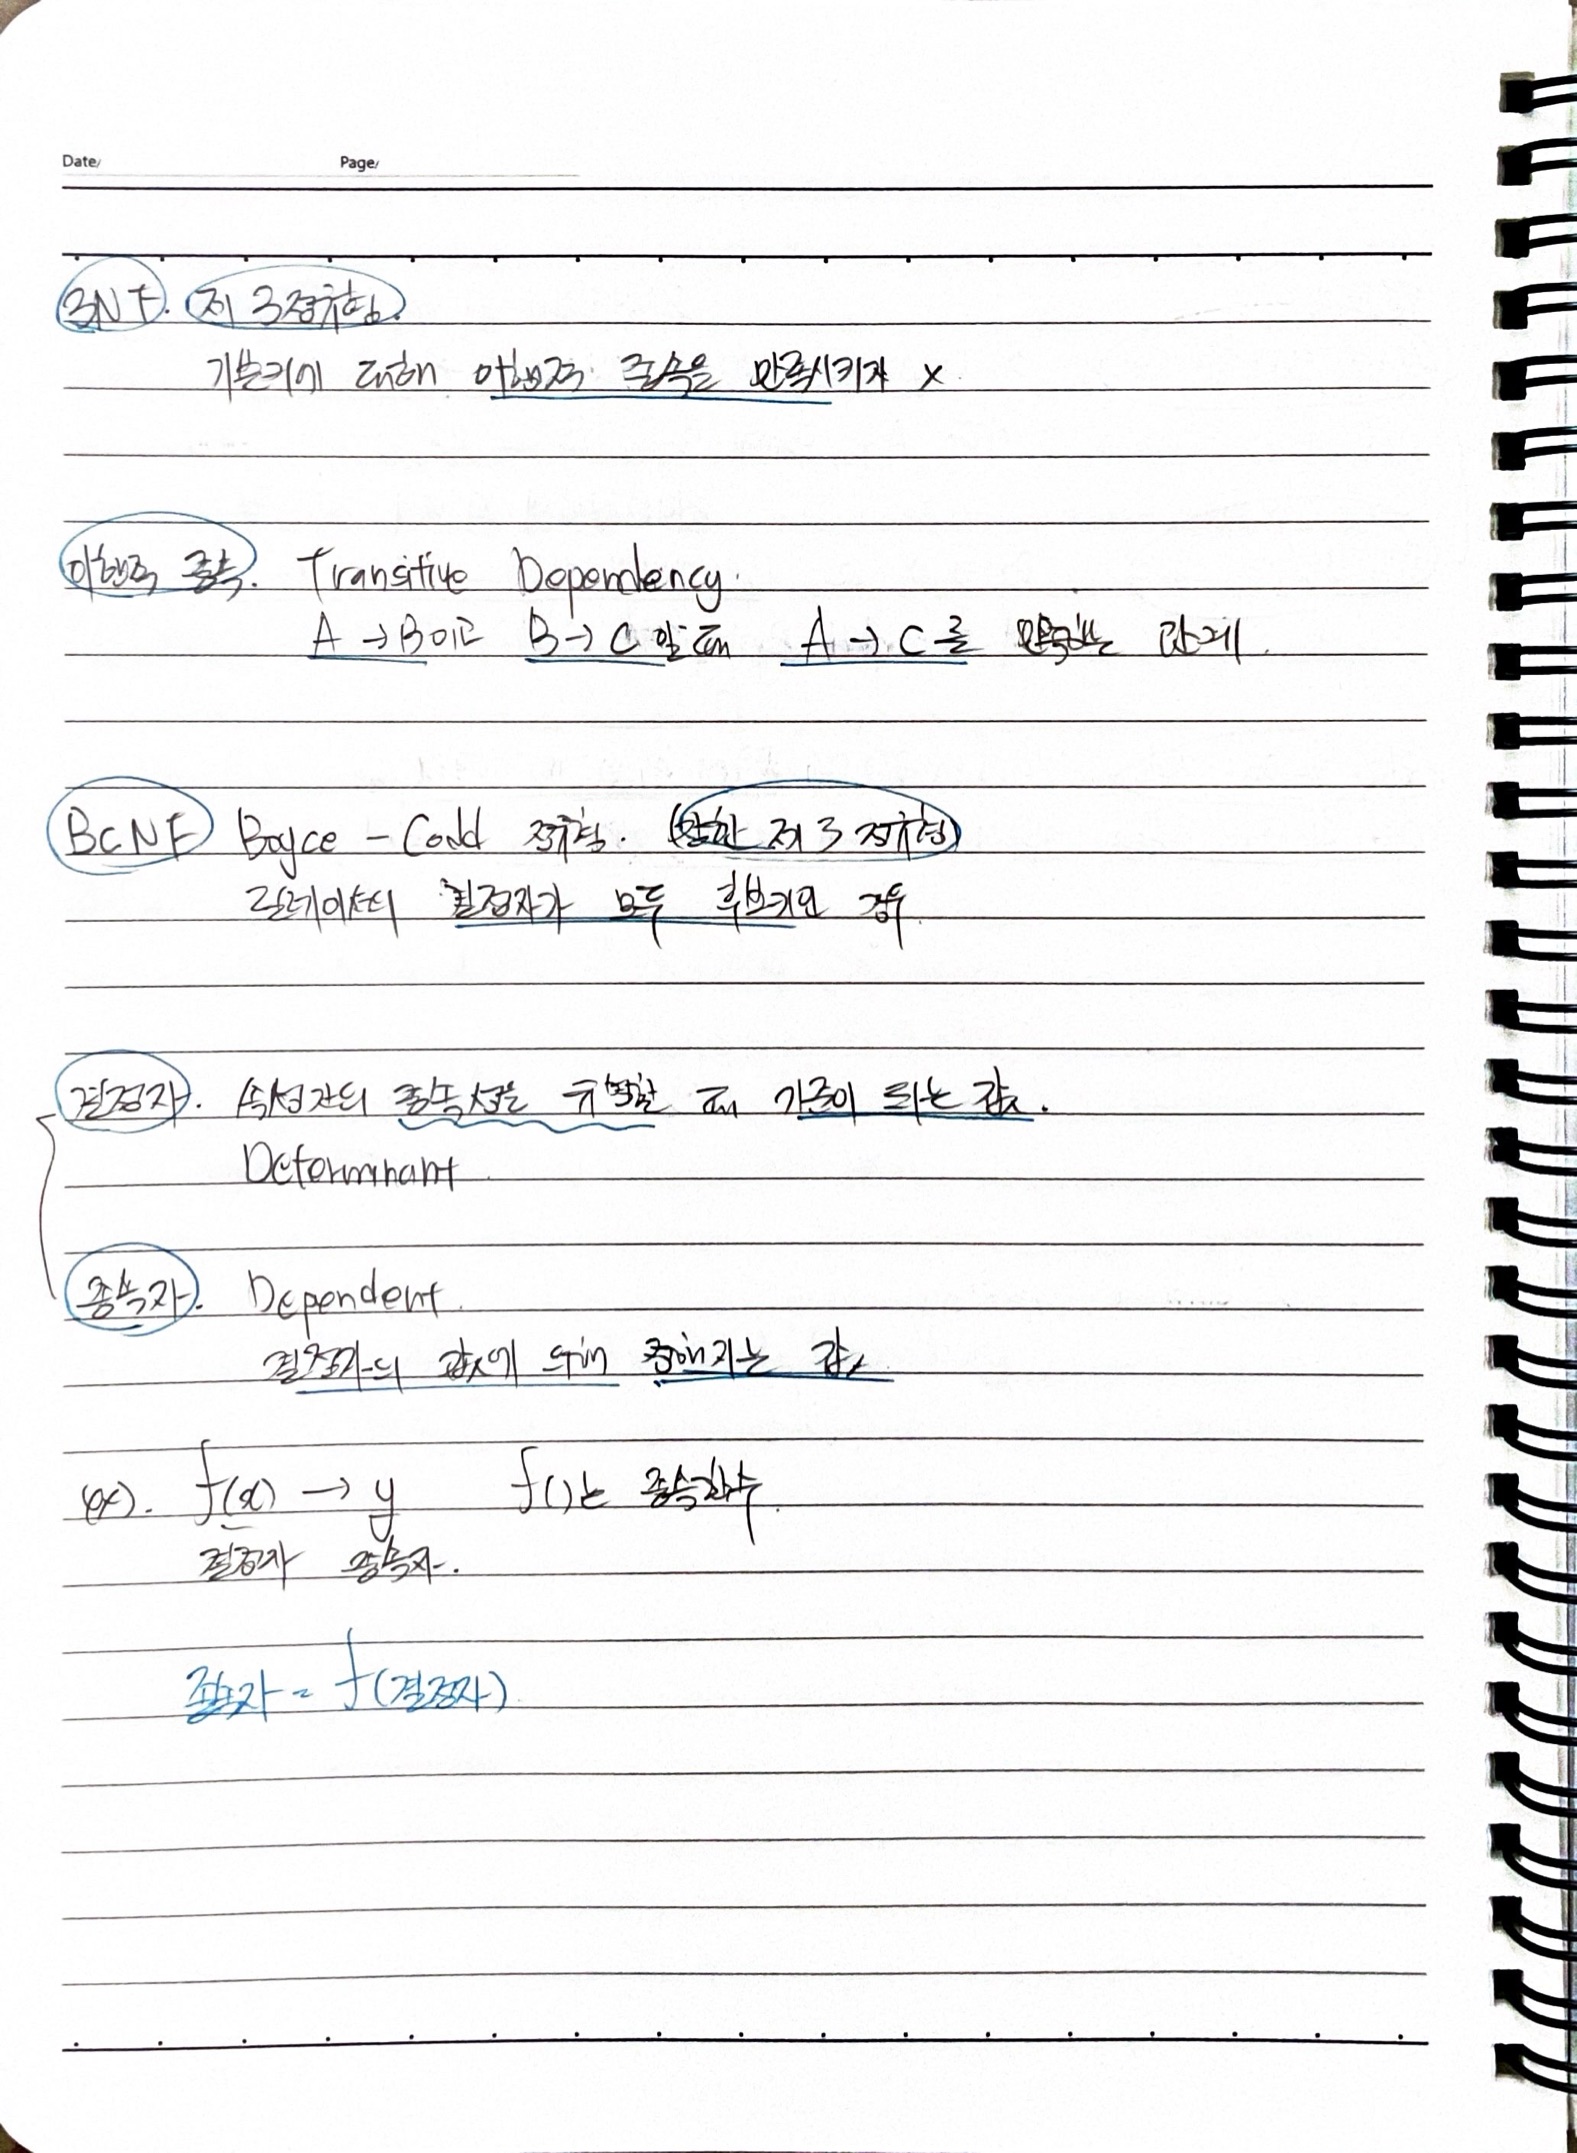 Date/ Page/
3NF. 제 3정규형.
기본키에 대해 이행적 종속을 만족시키지 x
이행적 종속. Transitive Dependency.
A → B이고 B → C 일 때 A → C를 만족하는 관계.
BCNF Boyce - Codd 정규형. (강한 제 3 정규형)
릴레이션의 결정자가 모두 후보키인 경우.
결정자. 속성간의 종속성을 규명할 때 기준이 되는 값.
Determinant.
종속자. Dependent.
결정자의 값에 의해 정해지는 값.
ex). f(x) → y f()는 종속함수.
결정자 종속자.
종속자 = f(결정자)